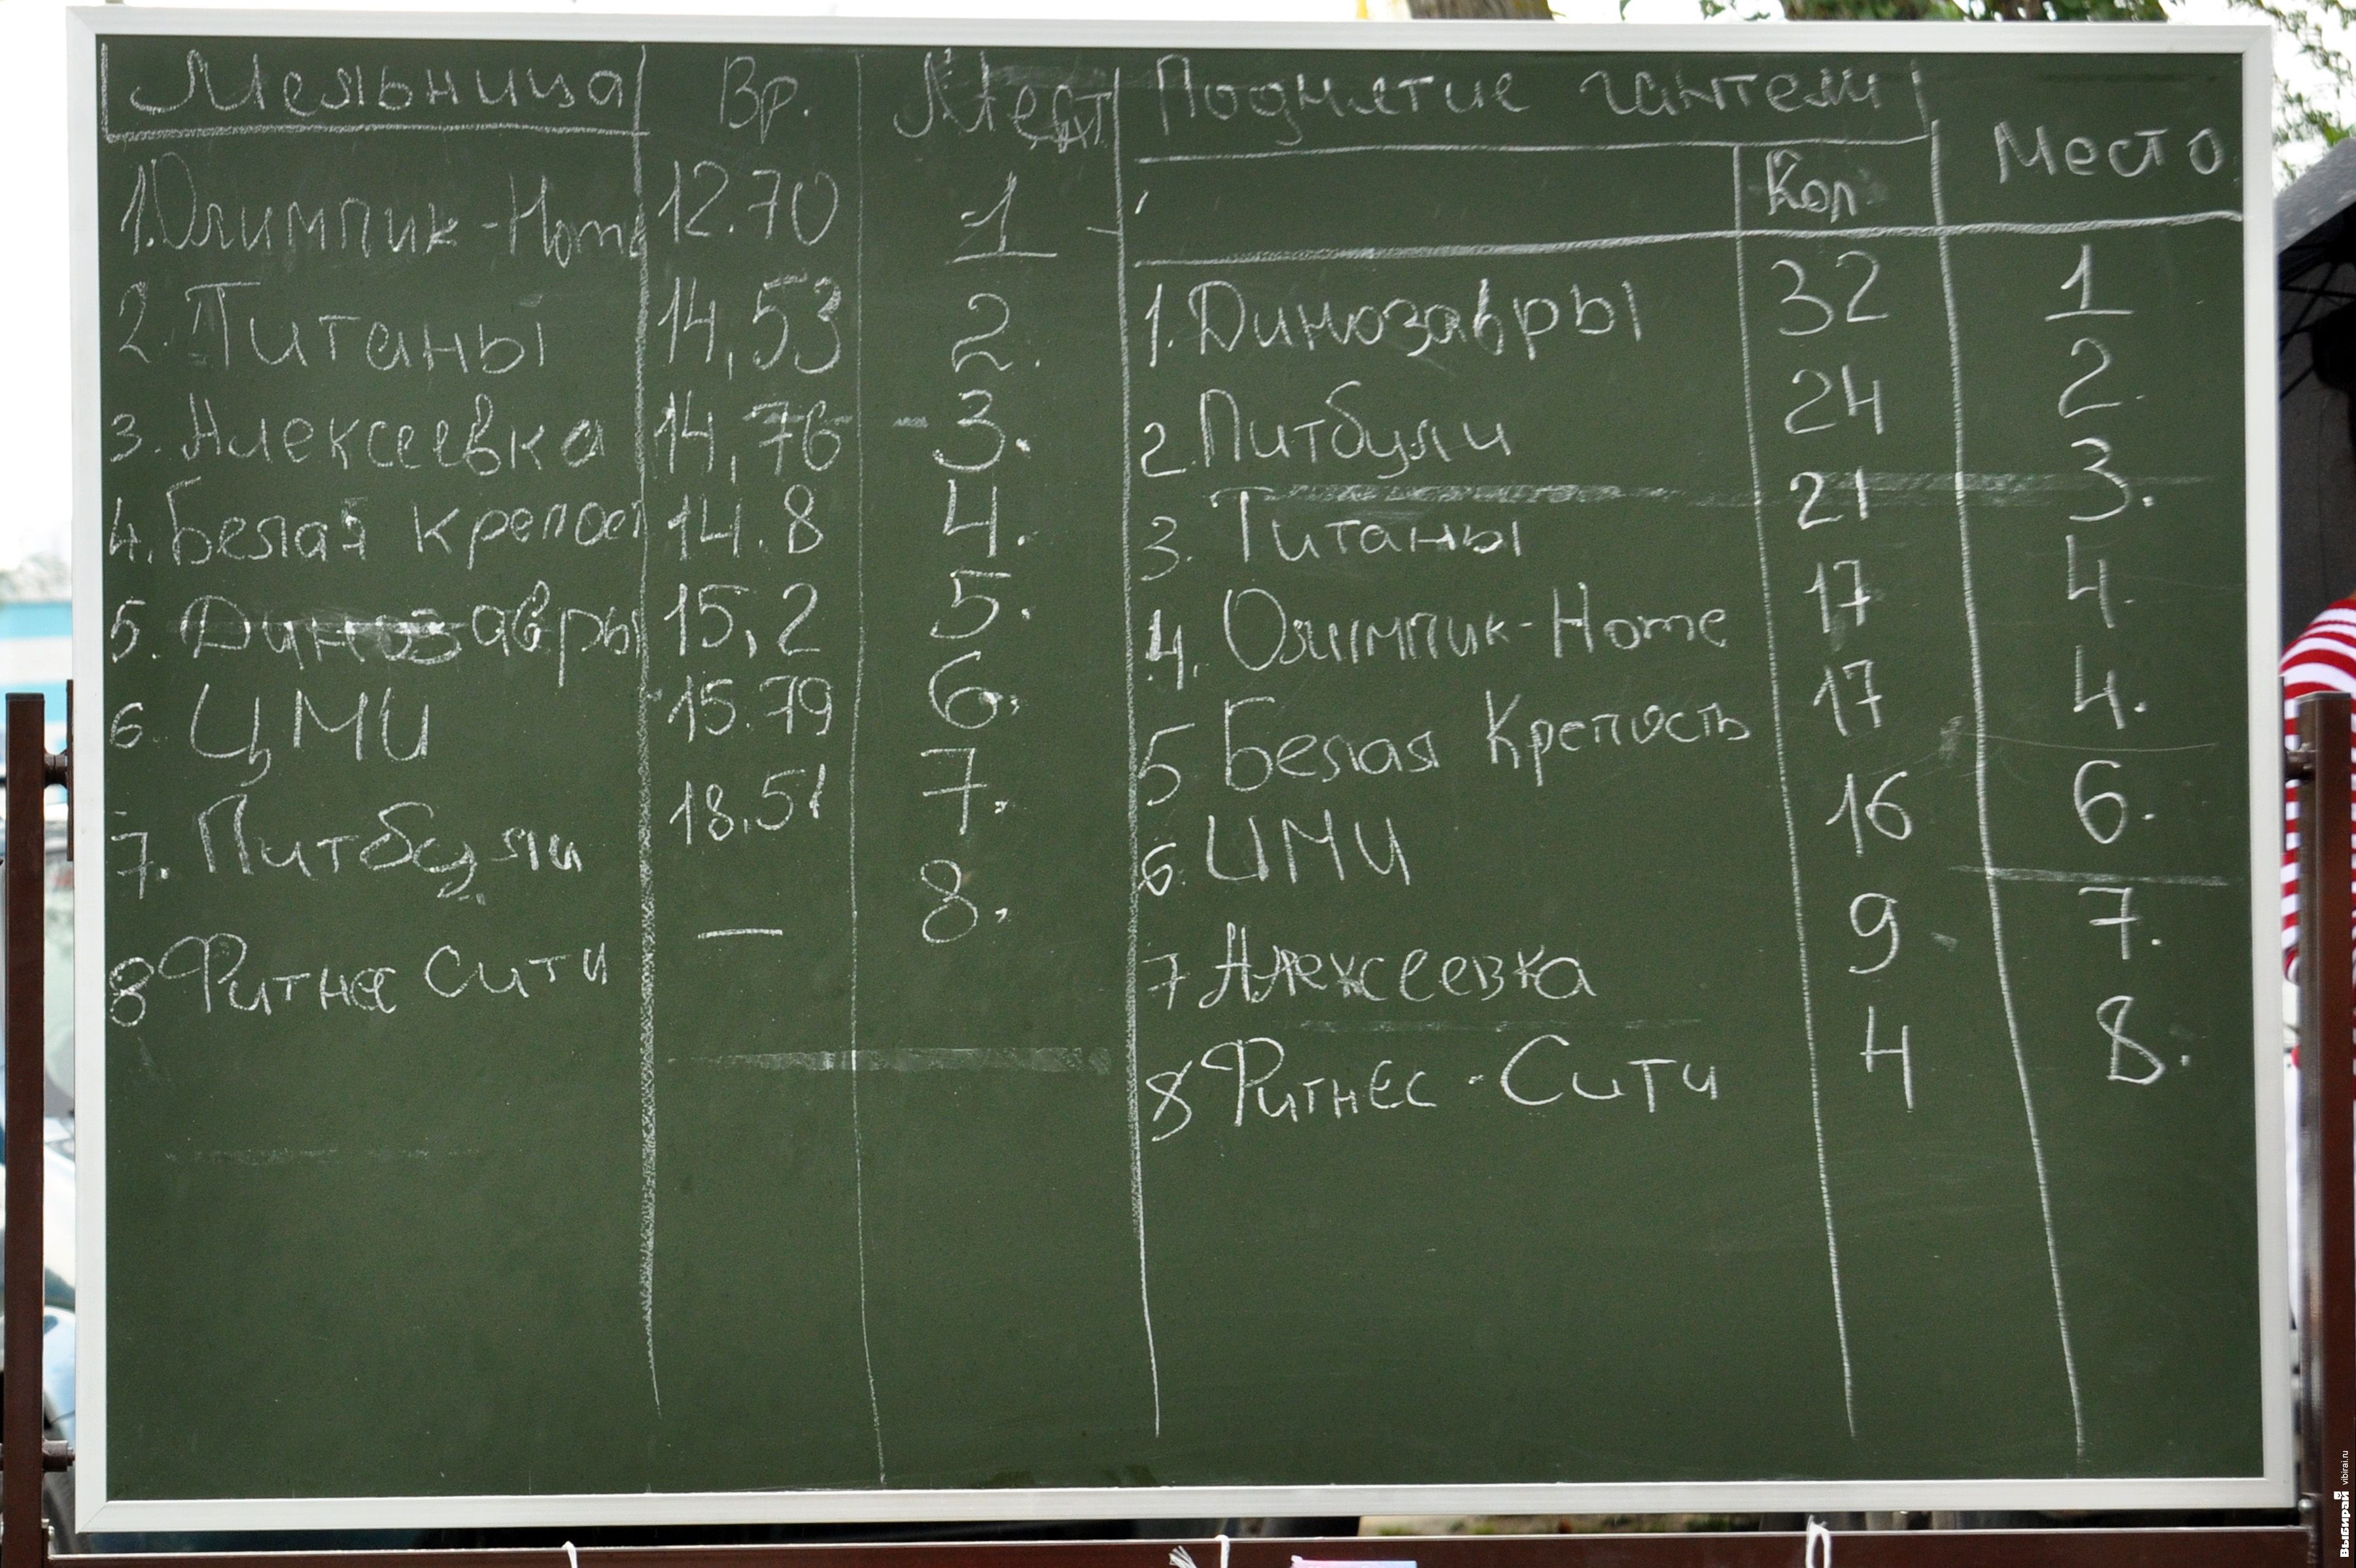 Мельница Вр. Мест
1.Олимпик-Home 12.70 1
2. Титаны 14,53 2.
3. Алексеевка 14,76 3.
4. Белая крепост 14.8 4.
5. Динозавры 15,2 5.
6 ЦМИ 15.79 6.
7. Питбули 18.51 7.
8 Фитнес Сити — 8.
Поднятие гантели Место
Кол
1. Динозавры 32 1
2. Питбули 24 2.
3. Титаны 21 3.
4. Олимпик-Home 17 4.
5 Белая Крепость 17 4.
6. ЦМИ 16 6.
7 Алексеевка 9 7.
8 Фитнес-Сити 4 8.
Выбирай vibirai.ru